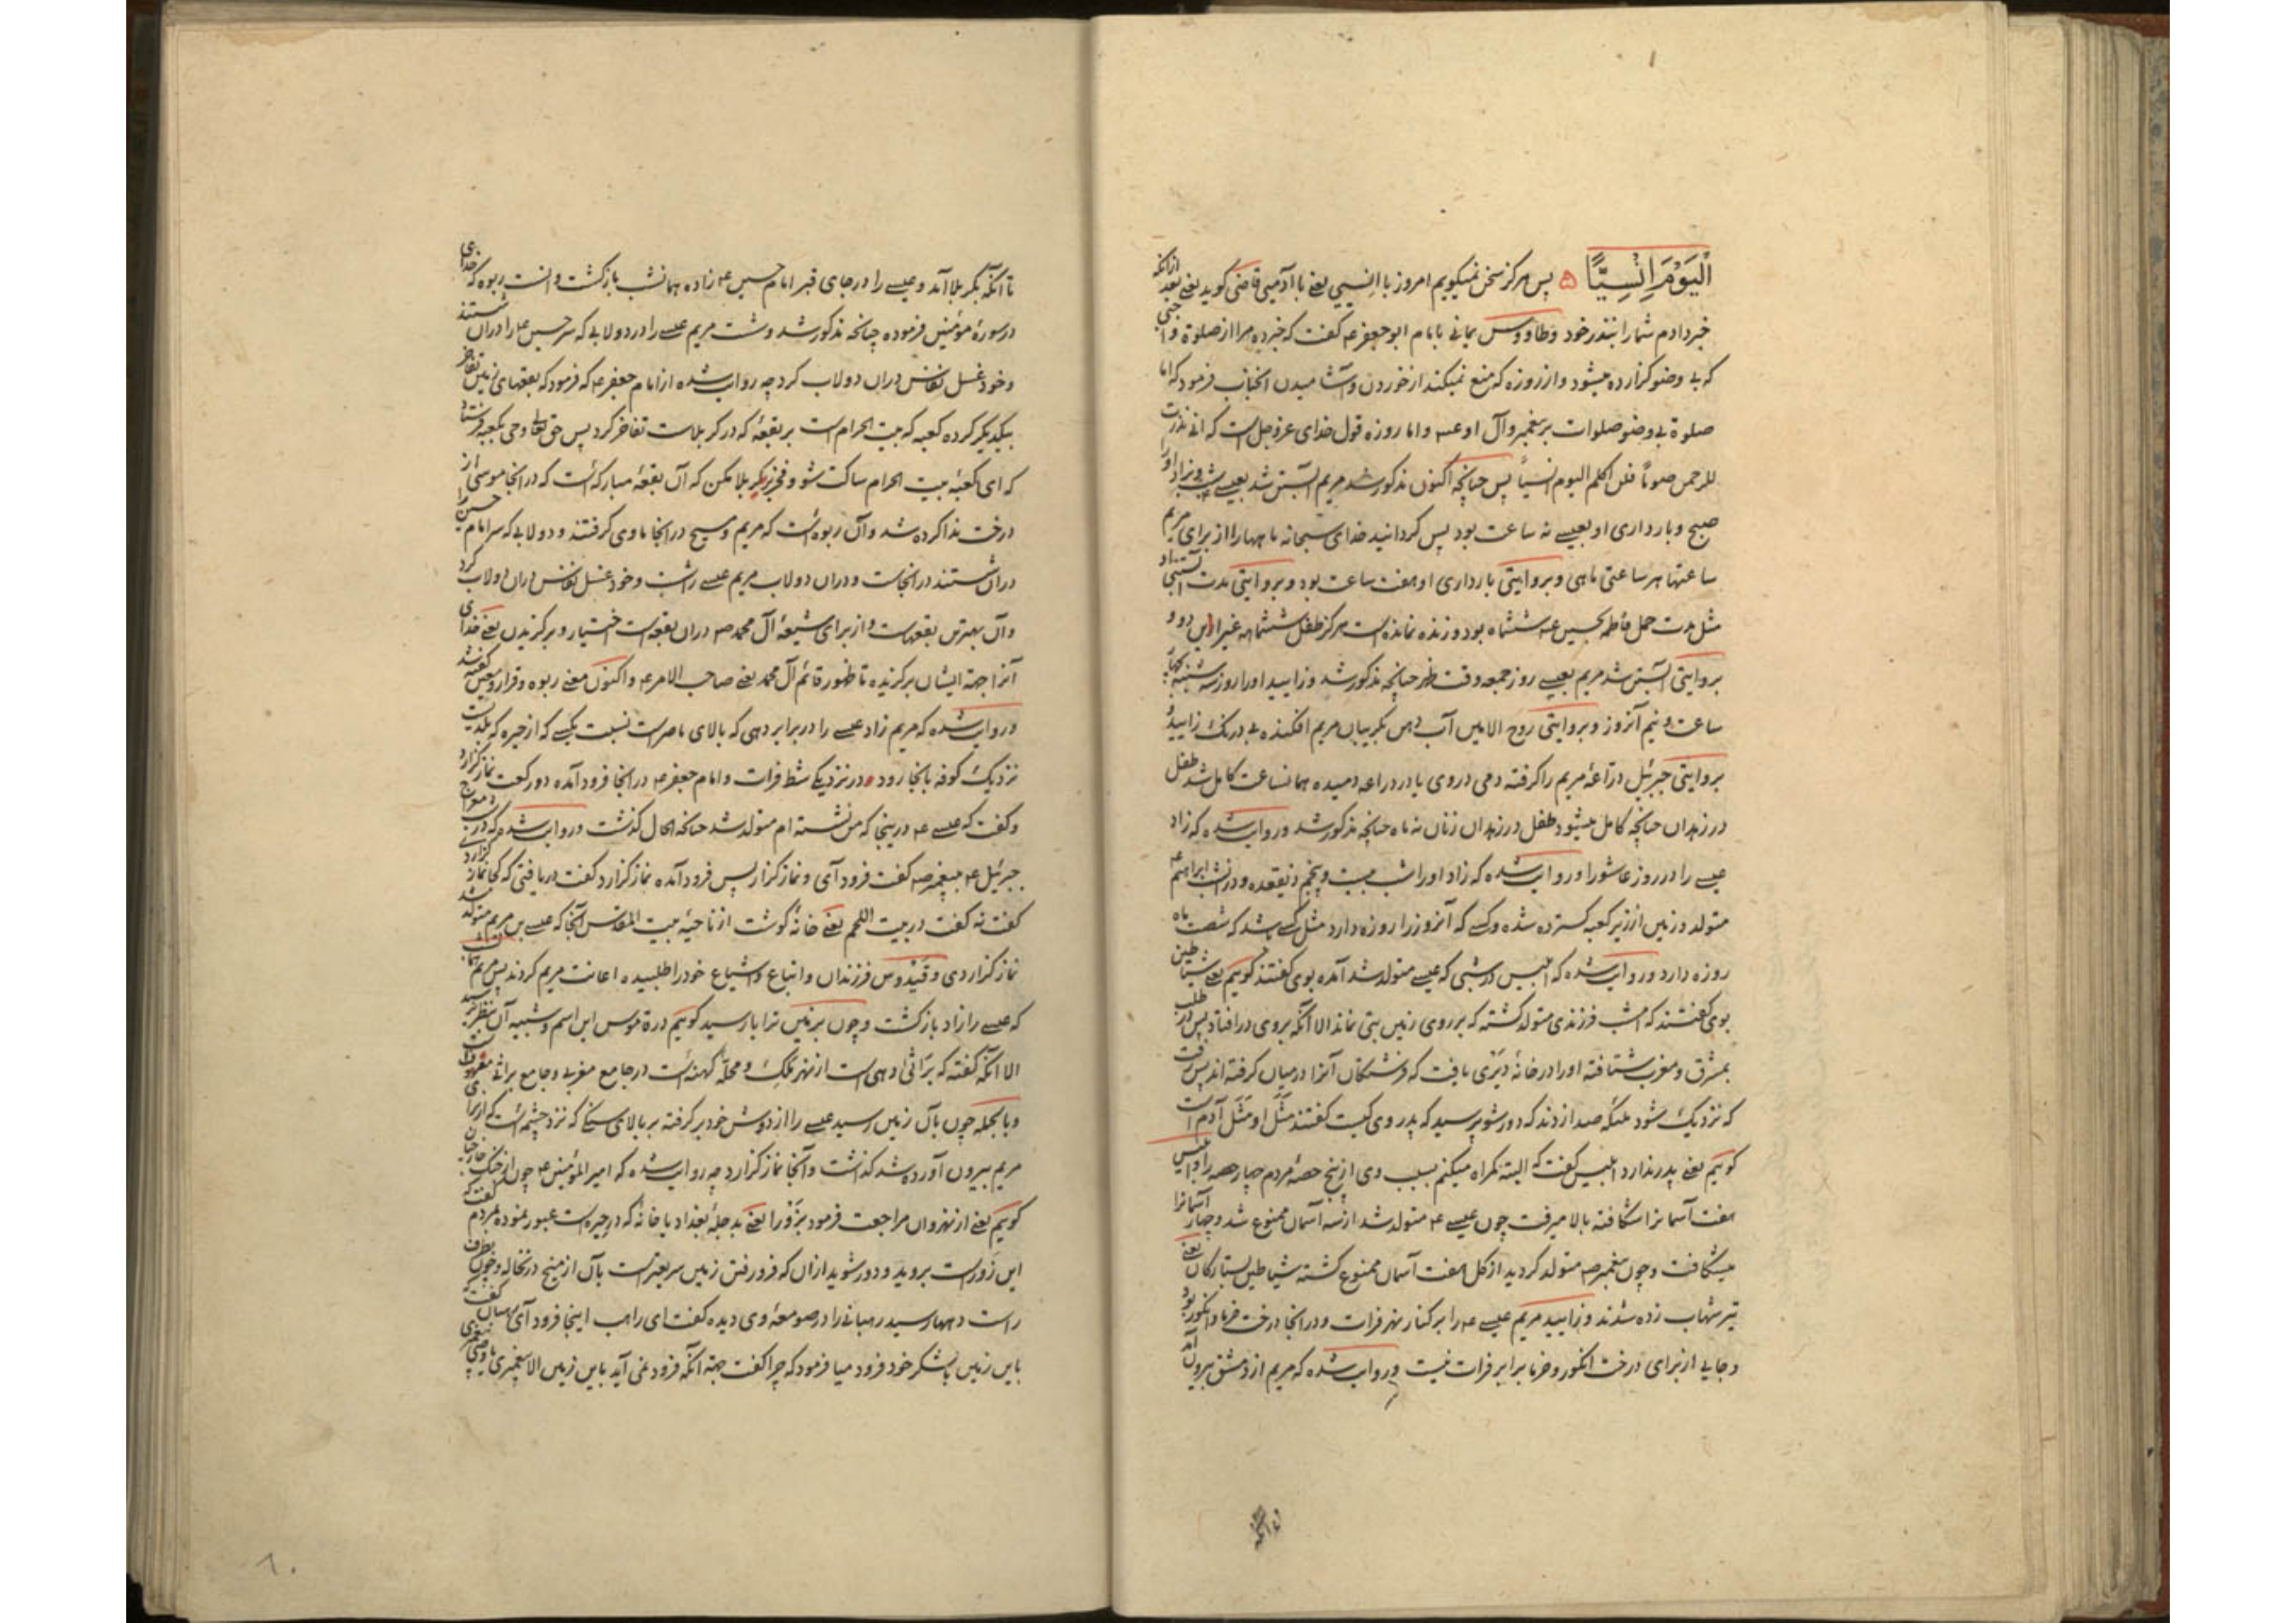 اَلْیَوْمَ اِنْسِیًّا پس هرکز سخن نمیکویم امروز با انسیی یعنے با آدمیی قاضی کوید یعنے بعد ازانکه
خبر دادم شما را بنذر خود وطاووس یمانی بامام ابوجعفر ع کفت که خبر ده مرا از صلوة واجبی
که بی وضو کزارده میشود و از روزه که منع نمیکند از خوردن و آشامیدن انجناب فرمود که اما
صلوة بی وضو صلوات بر پیغمبر وآل او ع و اما روزه قول خدای عز وجل است که انی نذرت
للرحمن صوماً فلن اکلم الیوم انسیاً پس چنانچه اکنون مذکور شد مریم آبستن شد بعیسے شب و بزاد او را
صبح و بارداری او بعیسے نه ساعت بود پس کردانید خدای سبحانه ماهها را از برای مریم
ساعتها هر ساعتی ماهی و بروایتی بارداری او هفت ساعت بود و بروایتی مدت آبستنی او
مثل مدت حمل فاطمه بحسین ع ششماه بود و زنده نمانده است هرکز طفل ششماهه غیر ازین دو و
بروایتی آبستن شد مریم بعیسے روز جمعه وقت ظهر چنانچه مذکور شد و زایید او را روز سه شنبه
ساعت و نیم آنروز و بروایتی روح الامین آب دهن بکریبان مریم افکنده بی درنک زایید و
بروایتی جبرئیل دراعهٔ مریم را کرفته دمی در وی یا در دراعه دمیده همانساعت کامل شد طفل
در زهدان چنانچه کامل میشود طفل در زهدان زنان نه ماه چنانچه مذکور شد و روایت شده که زاد
عیسے را در روز عاشورا و روایت شده که زاد او را شب بیست و پنجم ذیقعده و در آنشب ابراهیم ع
متولد و زمین از زیر کعبه کسترده شده و کسے که آنروز را روزه دارد مثل کسے باشد که شصت ماه
روزه دارد و روایت شده که ابلیس در شبی که عیسے متولد شد آمده بوی کفتند کویم یعنے شیاطین
بوی کفتند که امشب فرزندی متولد کشته که بر روی زمین بتی نماند الا آنکه بروی در افتاد پس در طلب
بمشرق و مغرب شتافته او را در خانهٔ دیری یافت که فرشتکان آنرا در میان کرفته اند پس رفت
که نزدیک شود ملئکه صدا زدند که دور شو پرسید که پدر وی کیست کفتند مَثَل او مَثَل آدم است
کویم یعنے پدر ندارد ابلیس کفت که البته کمراه میکنم بسبب وی از پنج حصهٔ مردم چهار حصه را و ابلیس
هفت آسمانرا شکافته بالا میرفت چون عیسے ع متولد شد از سه آسمان ممنوع شد و چهار آسمانرا
میشکافت و چون پیغمبر ص متولد کردید از کل هفت آسمان ممنوع کشته شیاطین بستارکان یعنے
تیر شهاب زده شدند و زایید مریم عیسے ع را بر کنار نهر فرات و در انجا درخت خرما و انکور بود
و جایی از برای درخت انکور و خرما برابر فرات نیست و روایت شده که مریم از دمشق بیرون آمد
تا آنکه بکربلا آمد و عیسے را در جای قبر امام حسین ع زاده همانشب بازکشت و انست ربوه که خدای
در سورهٔ مؤمنین فرموده چنانچه مذکور شد و شست مریم عیسے را در دولابی که سر حسین ع را دران شستند
و خود غسل نفاسش دران دولاب کرد چه روایت شده از امام جعفر ع که فرمود که بقعهای زمین تفاخر
بیکدیکر کرده کعبه که بیت الحرام است بر بقعهٔ که در کربلاست تفاخر کرد پس حق تعالی وحی بکعبه فرستاد
که ای کعبهٔ بیت الحرام ساکت شو و فخر بر کربلا مکن که آن بقعهٔ مبارکه است که در انجا موسی از
درخت ندا کرده شد و آن ربوه است که مریم و مسیح در انجا ماوی کرفتند و دولابی که سر امام حسین را
دران شستند در انجاست و دران دولاب مریم عیسے را شست و خود غسل نفاسش دران دولاب کرد
و آن بهترین بقعهاست و از برای شیعهٔ آل محمد ص دران بقعه است اختیار و برکزیدن یعنے خدای
آنرا جهة ایشان برکزیده تا ظهور قائم آل محمد یعنے صاحب الامر ع و اکنون معنے ربوه و قرار و معین کفته شد
و روایت شده که مریم زاد عیسے را در برابر دهی که بالای ناصره است نسبت بکسے که از حیره که بلدیست
نزدیک کوفه بانجا رود و در نزدیکے شط فرات و امام جعفر ع در انجا فرود آمده دو رکعت نماز کزارد
و کفت که عیسے ع در ینجا که من نشسته ام متولد شد چنانچه الحال کذشت و روایت شده که در شب معراج
جبرئیل ع بپیغمبر ص کفت فرود آی و نماز کزار پس فرود آمده نماز کزارد کفت دریافتی که کجا نماز کزاردی
کفت نه کفت در بیت اللحم یعنے خانهٔ کوشت از ناحیهٔ بیت المقدس آنجا که عیسے بن مریم متولد شد
نماز کزاردی و قیدوس فرزندان و اتباع و اشیاع خود را طلبیده اعانت مریم کردند پس مریم همان شب
که عیسے را زاد بازکشت و چون بزمین براثا باز رسید کویم در قاموس این اسم و شبیه آن بنظر نرسید
الا آنکه کفته که براثی دهی است از نهر ملک و محله کهنه است در جامع مغربی و جامع براثی معروف است
و بالجمله چون بآن زمین رسید عیسے را از دوش خود برکرفته بر بالای سنکے که نزد چشمه است که از برای
مریم بیرون آورده شد کذاشت و آنجا نماز کزارد چه روایت شده که امیر المؤمنین ع چون از جنک خارجیان
کویم یعنے از نهروان مراجعت فرمود بزورا یعنے بدجلهٔ بغداد یا خانهٔ که در حیره است عبور نموده بمردم کفت که
این زوراست بروید و دور شوید ازان که فرو رفتن زمین سریعتر است بآن از میخ در نخاله و چون بطرف
راست دهها رسید رهبانی را در صومعهٔ وی دیده کفت ای راهب اینجا فرود آی رهبان کفت که
باین زمین بالشکر خود فرود میا فرمود که چرا کفت جهة آنکه فرود نمی آید باین زمین الا پیغمبری یا وصی پیغمبری
تا آنکه
۸۰